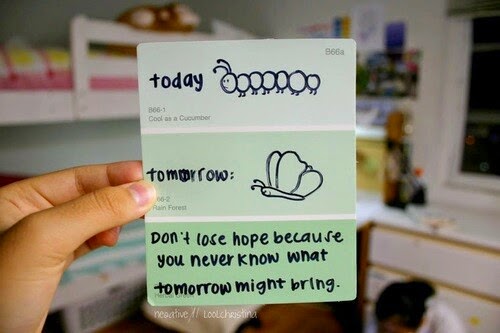 B66a
today
B66-1
Cool as a Cucumber
tomorrow:
66-2
Rain Forest
Don't lose hope because
you never know what
tomorrow might bring.
negative // loolchristina